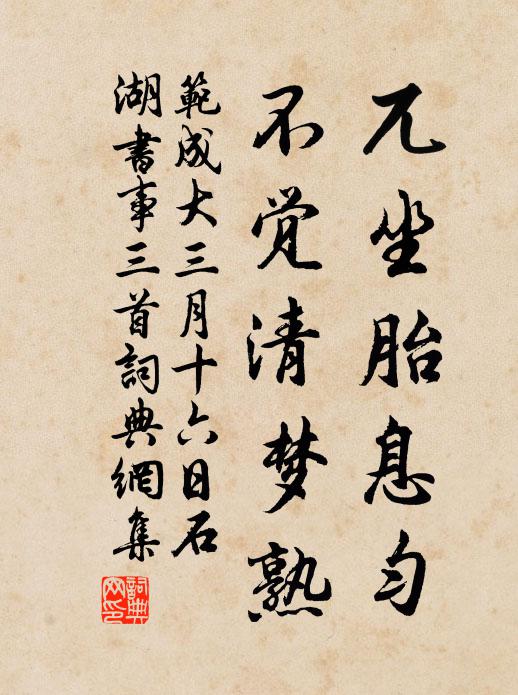 兀坐胎息匀
不觉清梦熟
範成大三月十六日石
湖書事三首詞典網集
詞典
网印